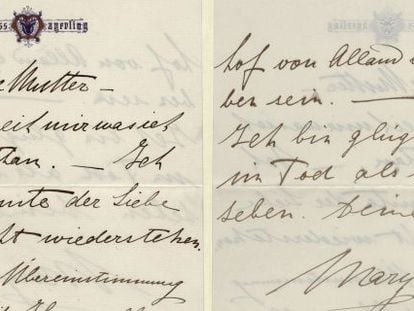 ss. ayerling
Mutter –
eih mir was ich
than. — Ich
nnte der Liebe
ht wiederstehen.
Übereinstimmung
it Ihm
hof von Alland
ben sein. —
Ich bin glü
im Tod als
Leben. Deine
Mary